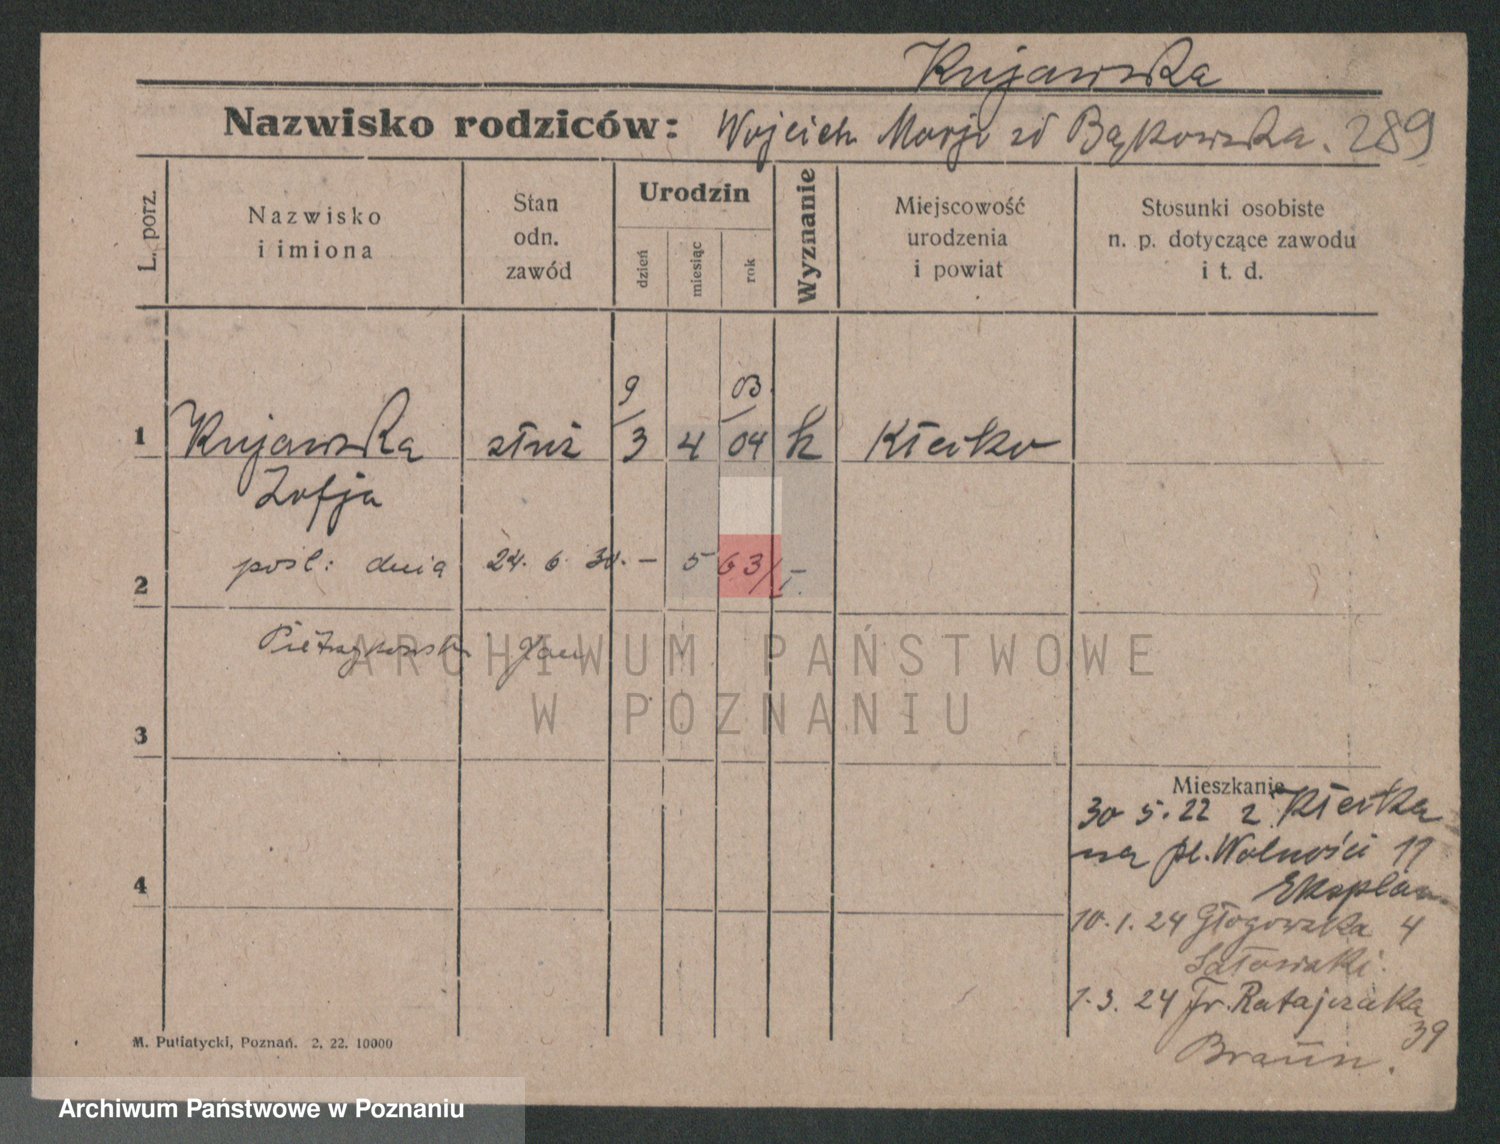 Kujawska
Nazwisko rodziców: Wojciech Marja zd Bąkowska. 289
L. porz.
Nazwisko
i imiona
Stan
odn.
zawód
Urodzin
dzień
miesiąc
rok
Wyznanie
Miejscowość
urodzenia
i powiat
Stosunki osobiste
n. p. dotyczące zawodu
i t. d.
9 03
1 Kujawska służ 3 4 04 k Kłecko
Zofja
2 pośl: dnia 24. 6. 30. – 5 63/I.
Pietrzykowski Jan
ARCHIWUM PAŃSTWOWE
W POZNANIU
3
Mieszkanie
30 5. 22 z Kłecka
na pl. Wolności 11
4
10. 1. 24 Głogowska 4
1. 3. 24 Fr. Ratajczaka
39
Braun.
M. Putiatycki, Poznań. 2. 22. 10000
Archiwum Państwowe w Poznaniu